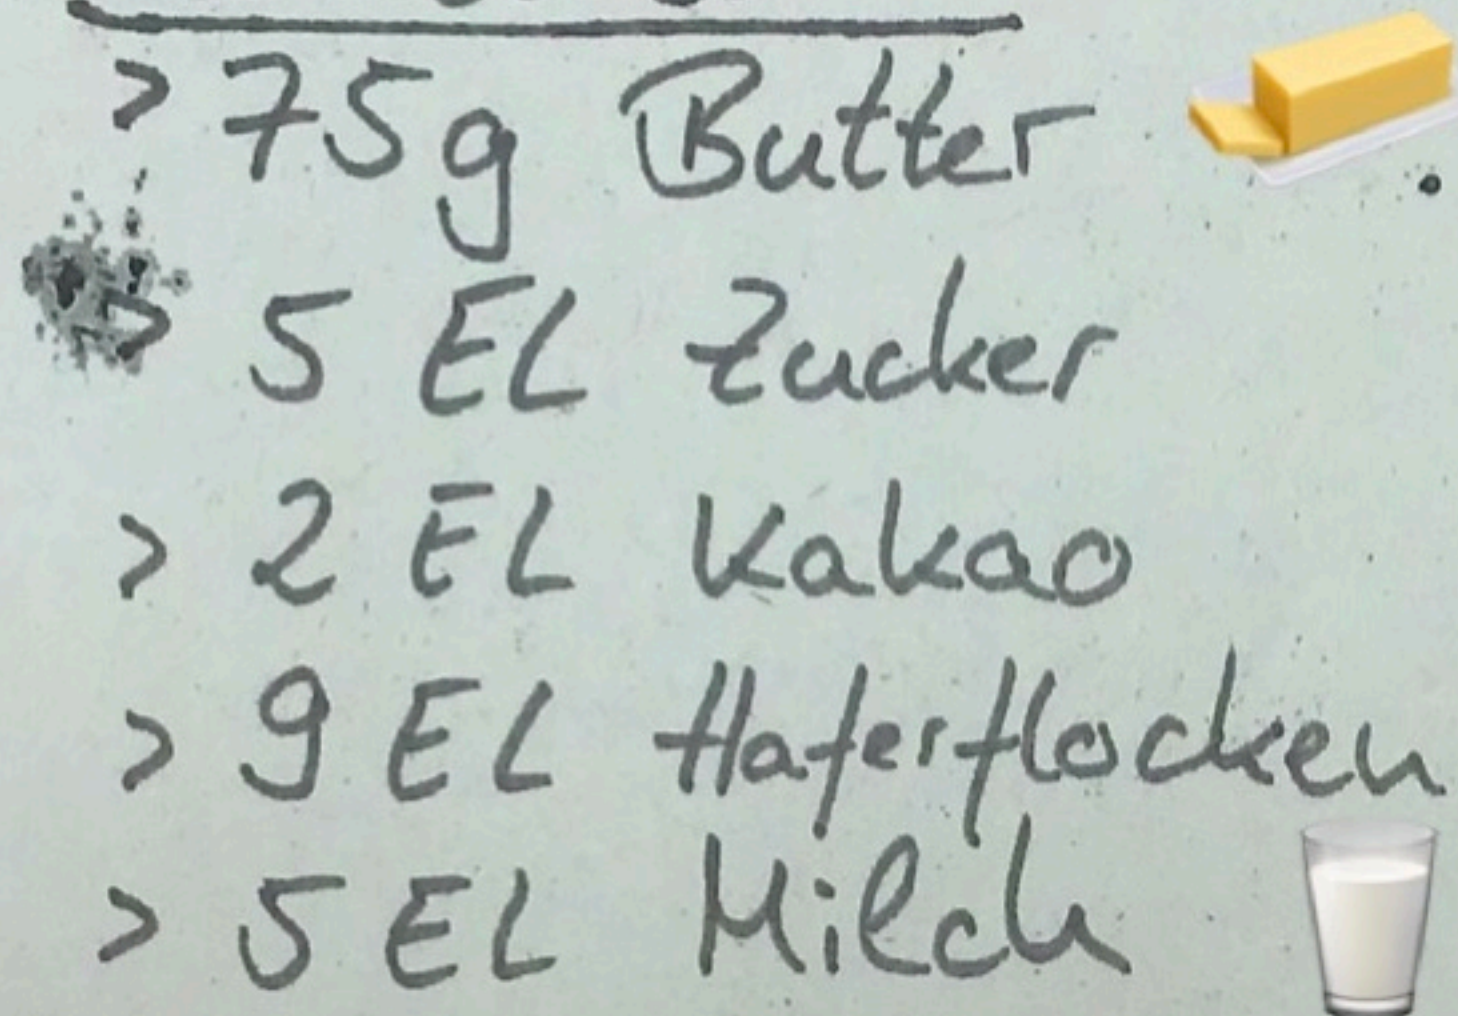 > 75g Butter
> 5 EL Zucker
> 2 EL Kakao
> 9 EL Haferflocken
> 5 EL Milch